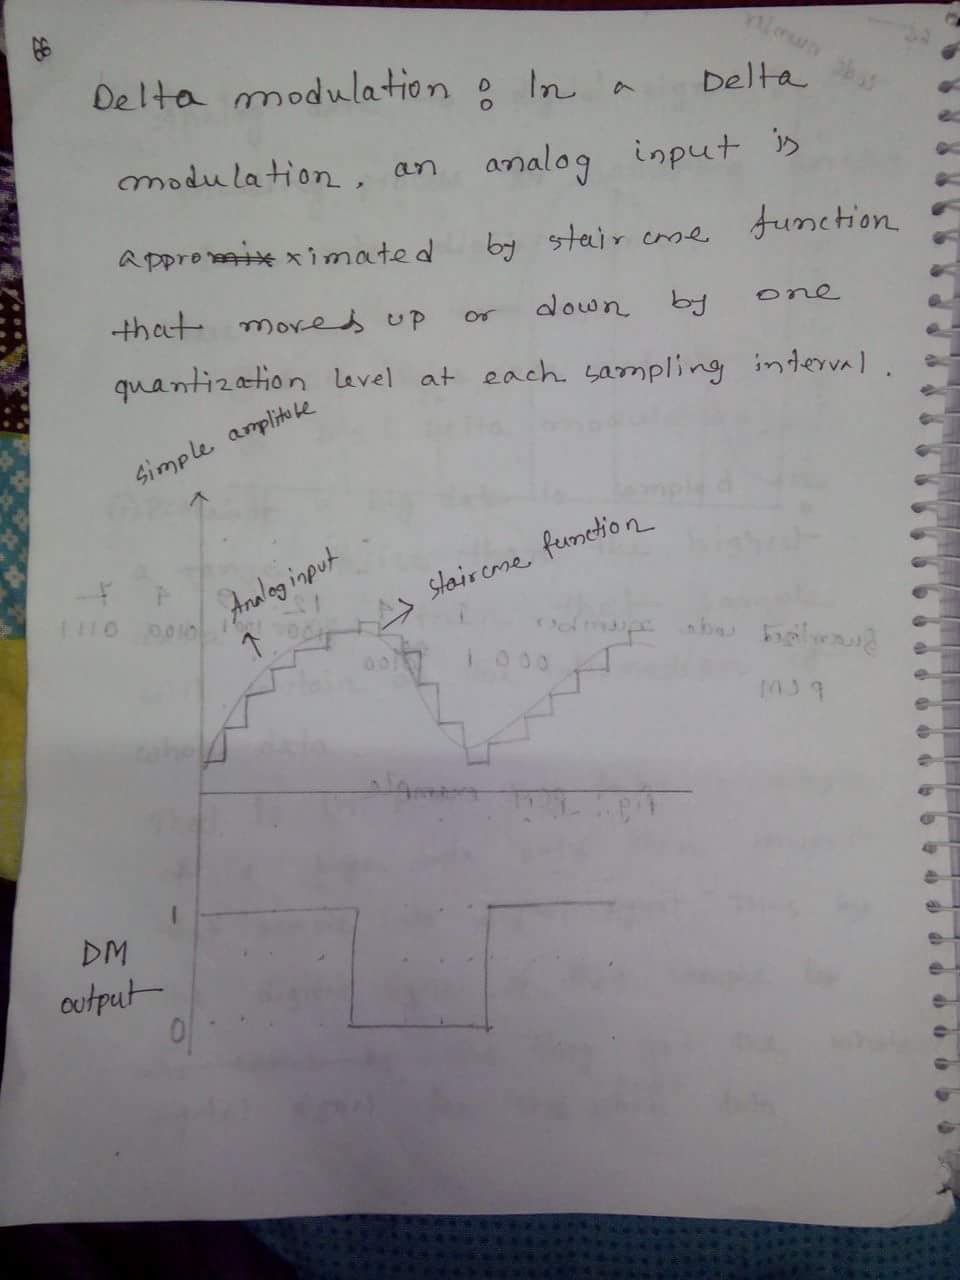 66
Delta modulation : In a Delta
modulation, an analog input is
appromix ximated by staircase function
that moves up or down by one
quantization level at each sampling interval.
Simple amplitube
Analog input
Staircase function
1
DM
output
0